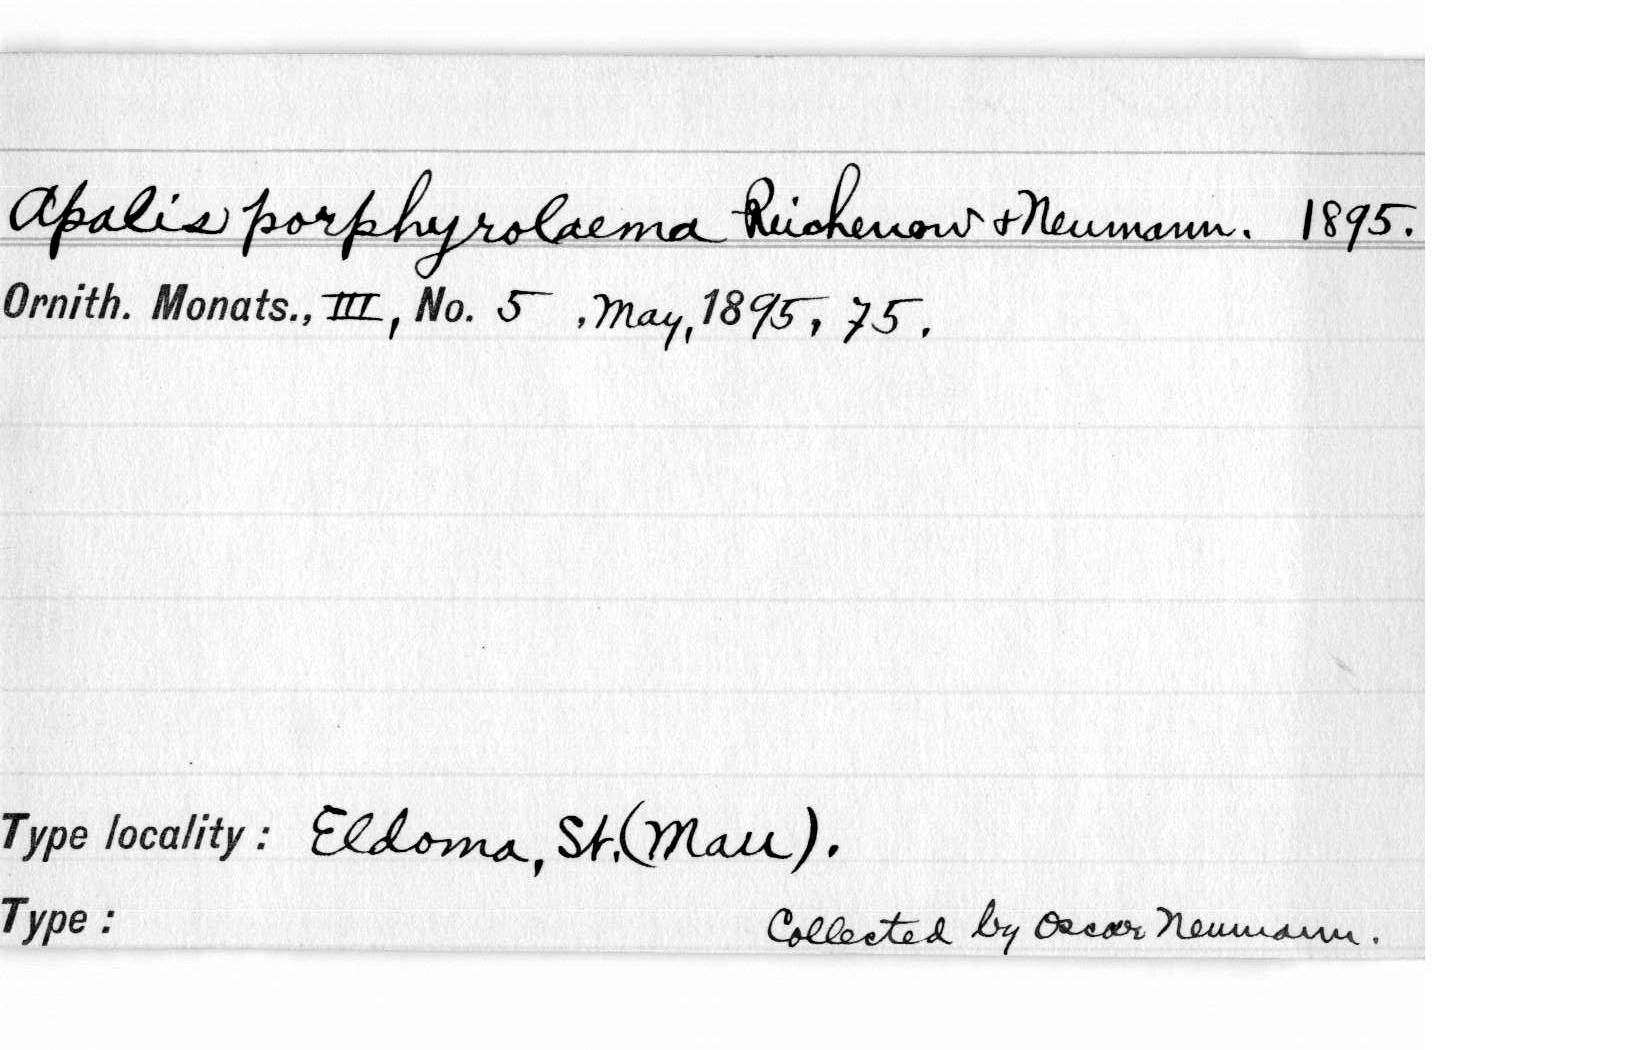 Apalis porphyrolaema Reichenow & Neumann. 1895.
Ornith. Monats., III, No. 5, May, 1895, 75.
Type locality: Eldoma, St. (Mau).
Type: Collected by Oscar Neumann.